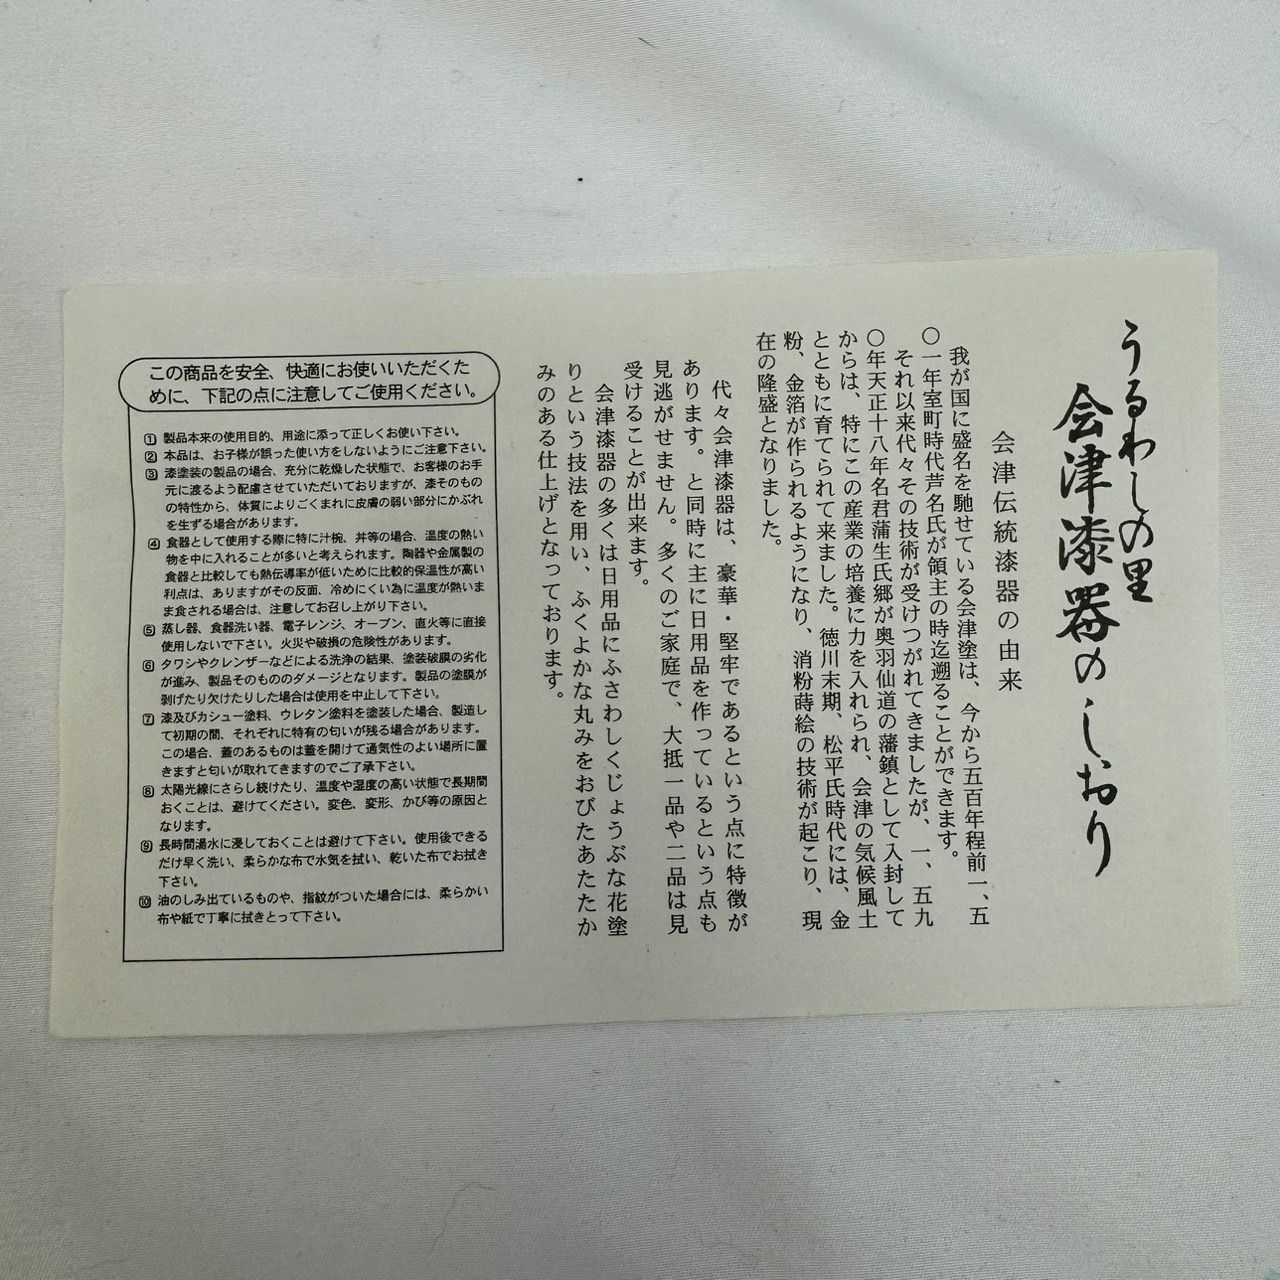 うるわしの里
会津漆器のしおり
会津伝統漆器の由来
我が国に盛名を馳せている会津塗は、今から五百年程前一、五
〇一年室町時代芦名氏が領主の時迄遡ることができます。
それ以来代々その技術が受けつがれてきましたが、一、五九
〇年天正十八年名君蒲生氏郷が奥羽仙道の藩鎮として入封して
からは、特にこの産業の培養に力を入れられ、会津の気候風土
とともに育てられて来ました。徳川末期、松平氏時代には、金
粉、金箔が作られるようになり、消粉蒔絵の技術が起こり、現
在の隆盛となりました。
代々会津漆器は、豪華・堅牢であるという点に特徴が
あります。と同時に主に日用品を作っているという点も
見逃がせません。多くのご家庭で、大抵一品や二品は見
受けることが出来ます。
会津漆器の多くは日用品にふさわしくじょうぶな花塗
りという技法を用い、ふくよかな丸みをおびたあたたか
みのある仕上げとなっております。
この商品を安全、快適にお使いいただくた
めに、下記の点に注意してご使用ください。
1 製品本来の使用目的、用途に添って正しくお使い下さい。
2 本品は、お子様が誤った使い方をしないようにご注意下さい。
3 漆塗装の製品の場合、充分に乾燥した状態で、お客様のお手
元に渡るよう配慮させていただいておりますが、漆そのもの
の特性から、体質によりごくまれに皮膚の弱い部分にかぶれ
を生ずる場合があります。
4 食器として使用する際に特に汁椀、丼等の場合、温度の熱い
物を中に入れることが多いと考えられます。陶器や金属製の
食器と比較しても熱伝導率が低いために比較的保温性が高い
利点は、ありますがその反面、冷めにくい為に温度が熱いま
ま食される場合は、注意してお召し上がり下さい。
5 蒸し器、食器洗い器、電子レンジ、オーブン、直火等に直接
使用しないで下さい。火災や破損の危険性があります。
6 タワシやクレンザーなどによる洗浄の結果、塗装破膜の劣化
が進み、製品そのもののダメージとなります。製品の塗膜が
剥げたり欠けたりした場合は使用を中止して下さい。
7 漆及びカシュー塗料、ウレタン塗料を塗装した場合、製造し
て初期の間、それぞれに特有の匂いが残る場合があります。
この場合、蓋のあるものは蓋を開けて通気性のよい場所に置
きますと匂いが取れてきますのでご了承下さい。
8 太陽光線にさらし続けたり、温度や湿度の高い状態で長期間
おくことは、避けてください。変色、変形、かび等の原因と
なります。
9 長時間湯水に浸しておくことは避けて下さい。使用後できる
だけ早く洗い、柔らかな布で水気を拭い、乾いた布でお拭き
下さい。
10 油のしみ出ているものや、指紋がついた場合には、柔らかい
布や紙で丁寧に拭きとって下さい。